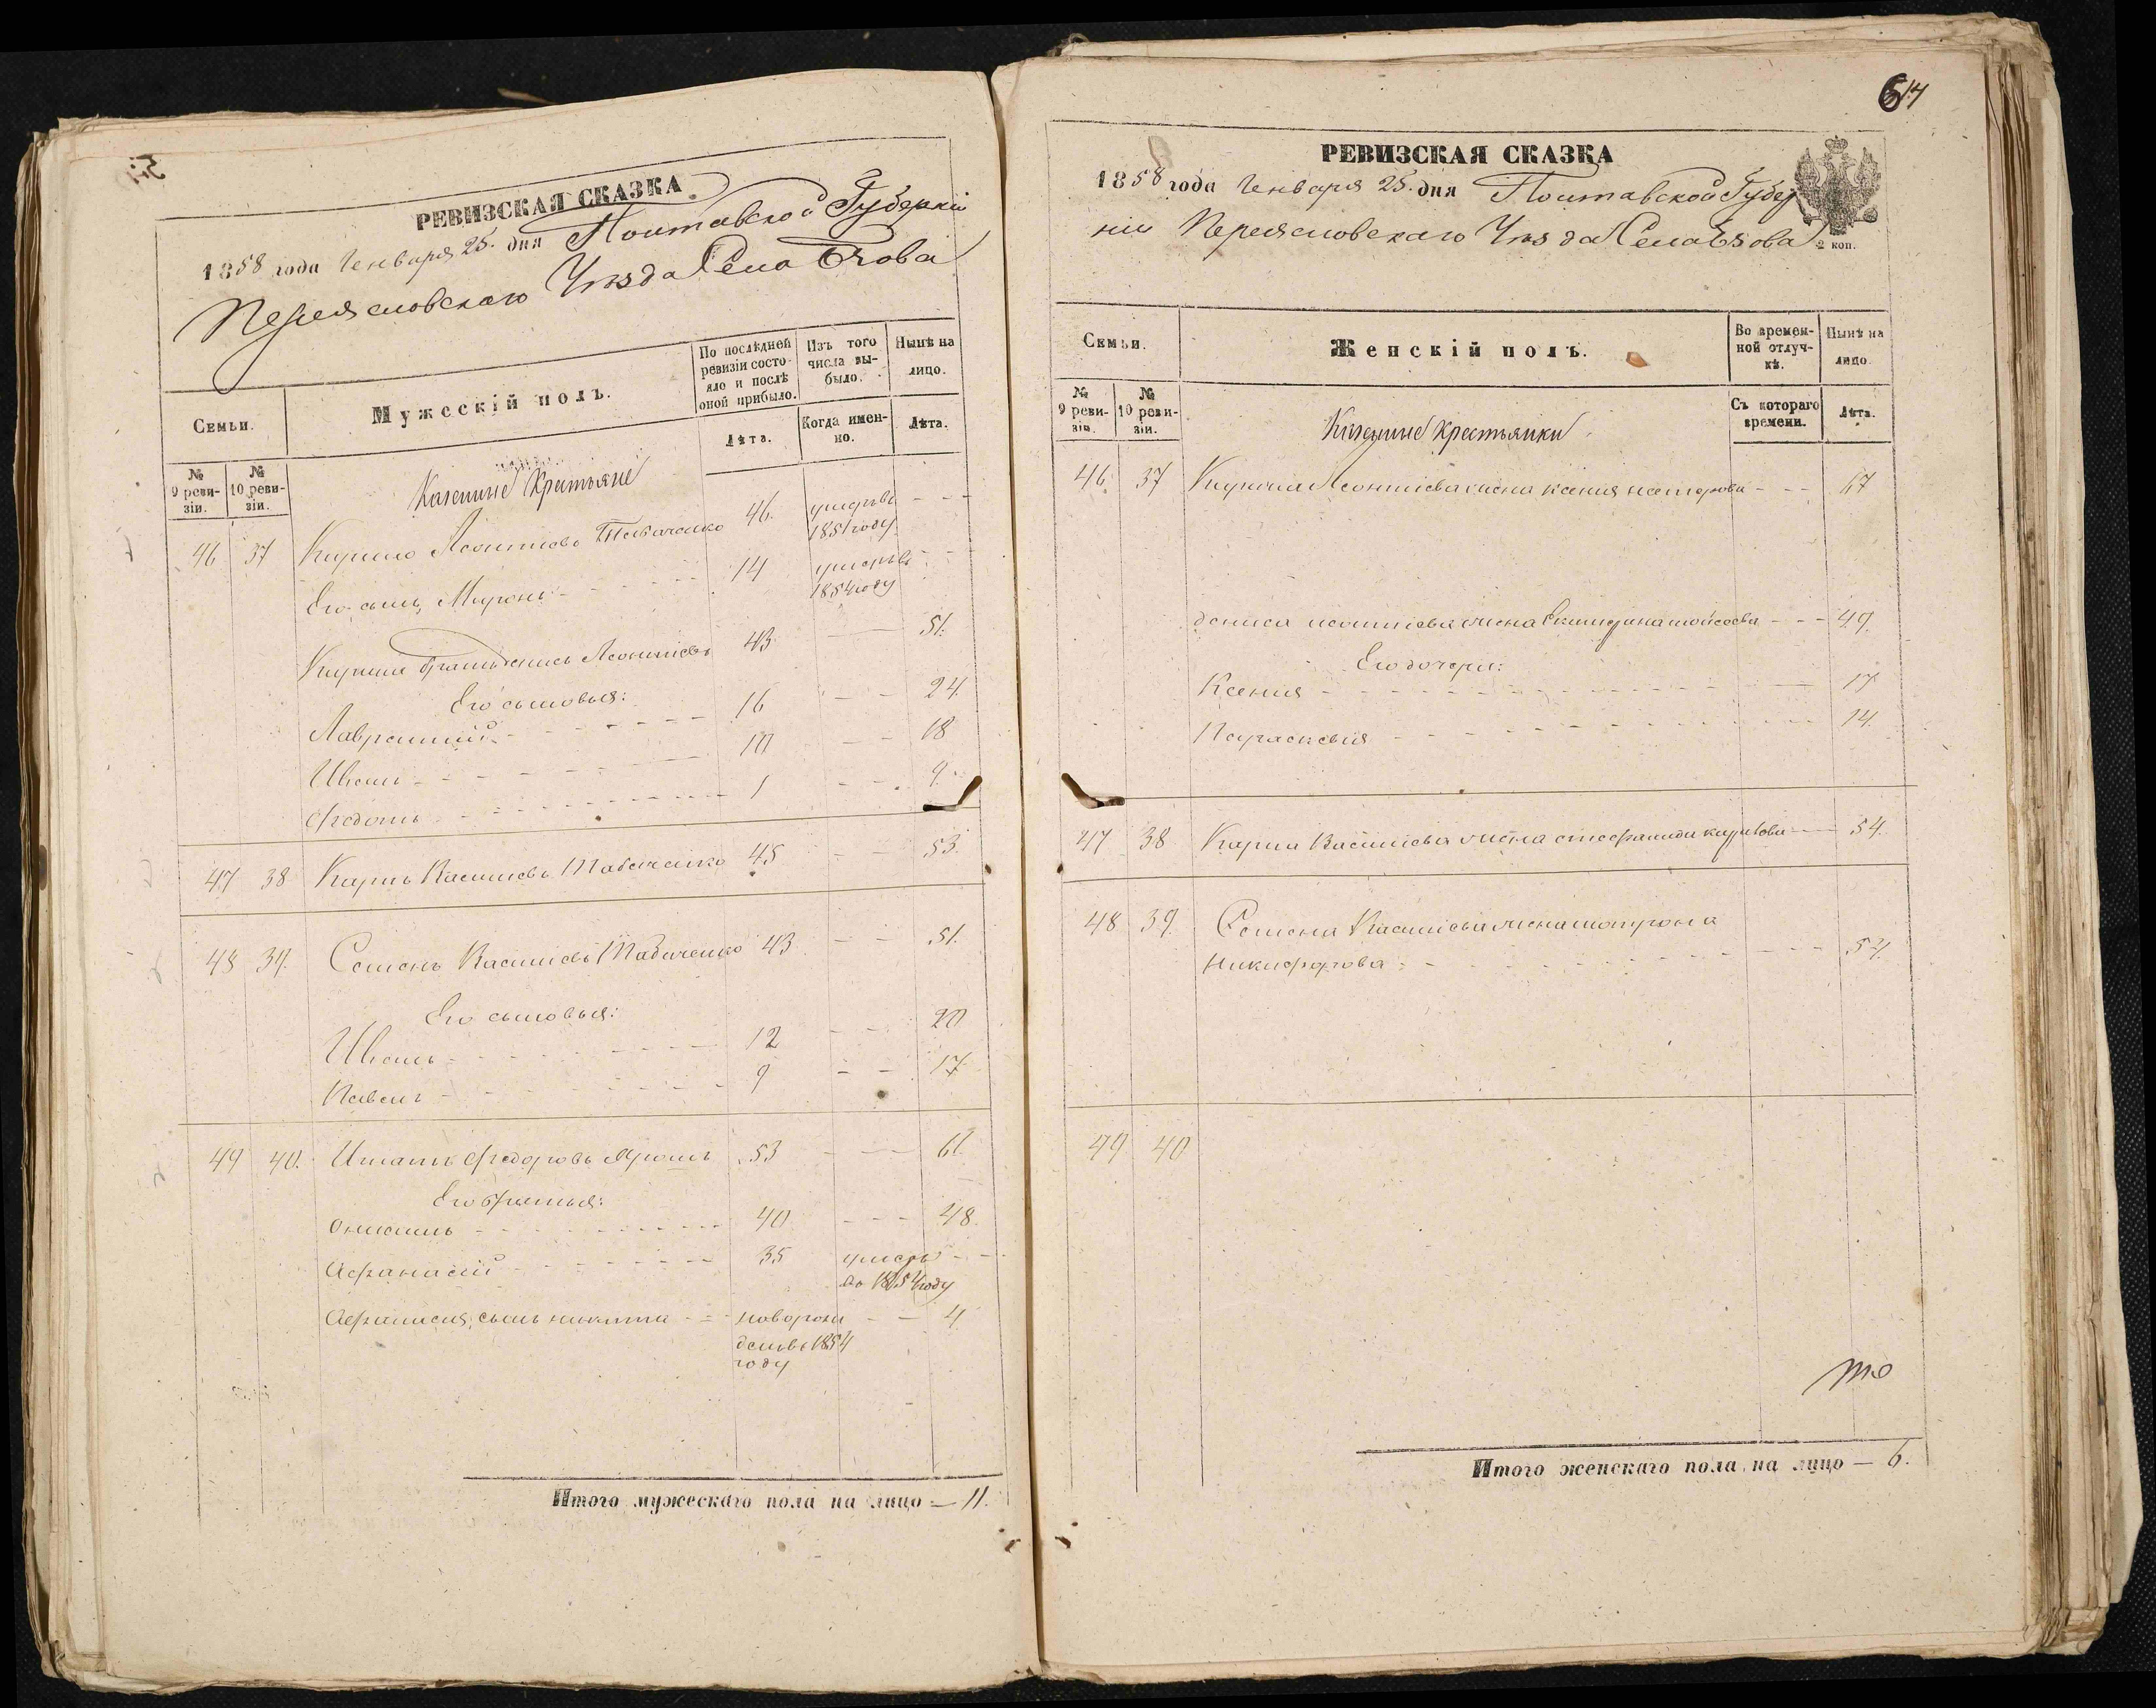 РЕВИЗСКАЯ СКАЗКА
1858 года Генваря 25. дня Полтавской Губерніи
Переясловскаго Уѣзда Села
Семьи.
Мужескій полъ.
По послѣдней ревизіи состояло и послѣ оной прибыло.
Изъ того числа выбыло.
Нынѣ на лицо.
№ 9 ревизіи.
№ 10 ревизіи.
Лѣта.
Когда именно.
Лѣта.
Казенные Крестьяне
46 37 Кирило Леонтіевъ Ткаченко 46. умеръ въ 1851 году
Его сынъ, Миронъ 14 умеръ въ 1854 году
Кирила братъ Денисъ Леонтіевъ 43 51.
Его сыновья:
Лаврентій 16 24.
Иванъ 10 18
Федотъ 1 9.
47 38 Карпъ Василіевъ Табаченко 45 53.
48 39. Семенъ Василіевъ Табаченко 43 51.
Его сыновья:
Иванъ 12 20
Павелъ 9 17.
49 40. Игнатъ Федоровъ 53 61.
Его братья:
Онисимъ 40 48.
Афанасій 35 умеръ въ 1854 году
Афанасия, сынъ никита новорожденъ въ 1854 году 4.
Итого мужескаго пола на лицо — 11.
614
РЕВИЗСКАЯ СКАЗКА
1858 года Генваря 25. дня Полтавской Губер
ніи Переясловскаго Уѣзда Села
2 коп.
Семьи.
Женскій полъ.
Во временной отлучкѣ.
Нынѣ на лицо.
№ 9 ревизіи.
№ 10 ревизіи.
Съ котораго времени.
Лѣта.
Казенные крестьянки
46. 37 Кирила Леонтіева жена ксения несторова 47
дениса леонтиева жена Екатерина моисеева 49.
Его дочери:
Ксения 17
Параскевия 14.
47 38 Карпа Василіева жена стефанида карпова 54.
48 39. Семена Василіева жена матрона
никифорова 54.
49 40
Итого женскаго пола на лицо — 6.